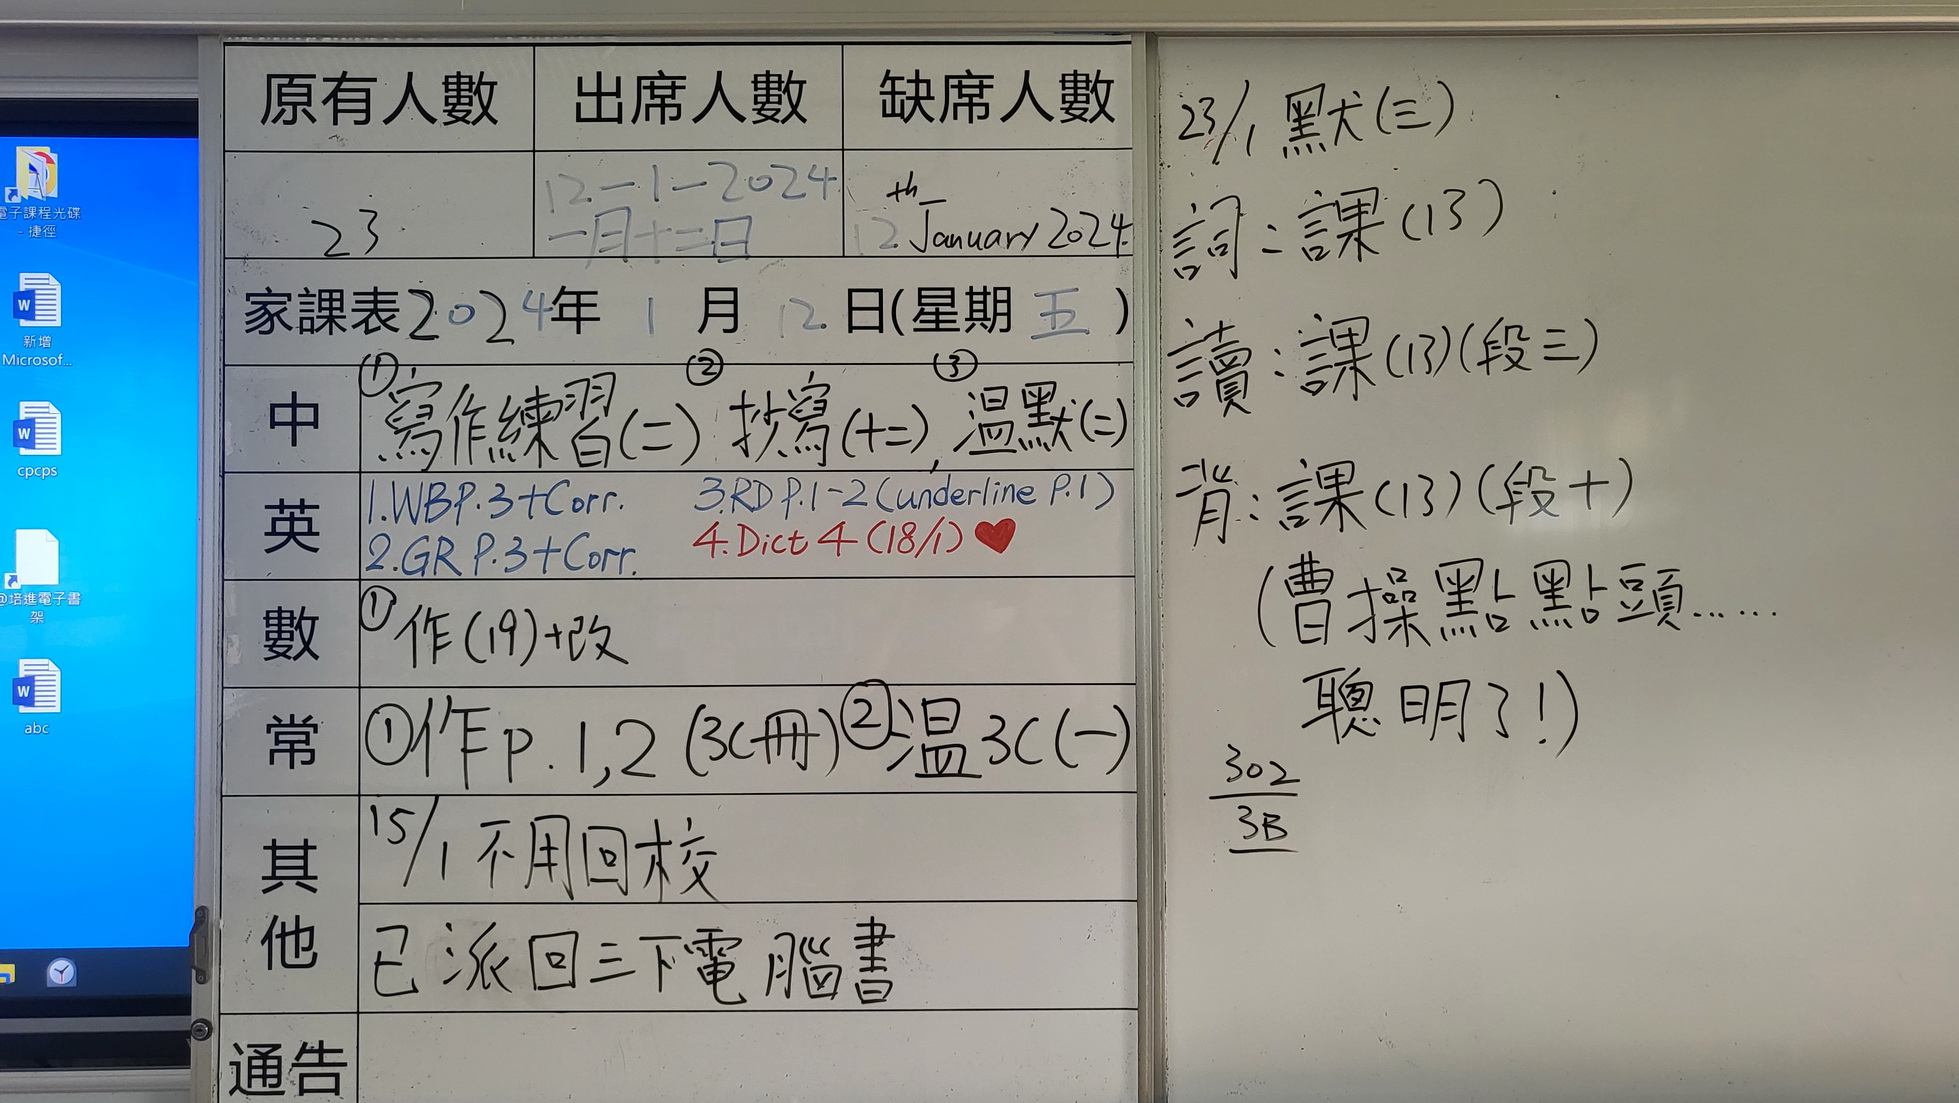 原有人數 出席人數 缺席人數
23 12-1-2024 12th January 2024
一月十二日
家課表2024年 1 月 12 日(星期 五 )
中 ①寫作練習(二) ②抄寫(十二), ③温默(二)
英 1.WB P.3+Corr. 3.RD P.1-2(underline P.1)
2.GR P.3+Corr. 4.Dict 4 (18/1) ♥
數 ①作(19)+改
常 ①作p.1,2 (3C冊) ②温3C(一)
其他 15/1 不用回校
已派回三下電腦書
通告
23/1 默(三)
詞:課(13)
讀:課(13)(段三)
背:課(13)(段十)
(曹操點點頭......
聰明了!)
302
3B
電子課程光碟
- 捷徑
新增
Microsof...
cpcps
@培進電子書
架
abc